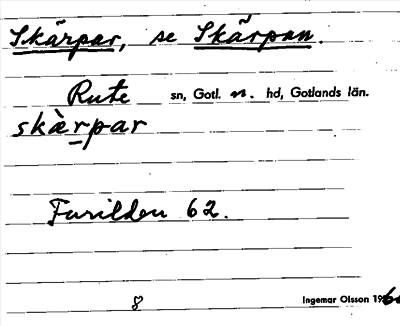 Skärpar, se Skärpan.
Rute sn, Gotl. n. hd, Gotlands län.
skæ̀rpar
Furilden 62.
8
Ingemar Olsson 1960